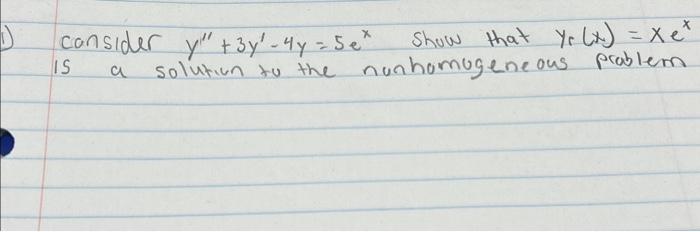 1) consider y'' + 3y' - 4y = 5e^x show that yr(x) = xe^x
is a solution to the nonhomogeneous problem